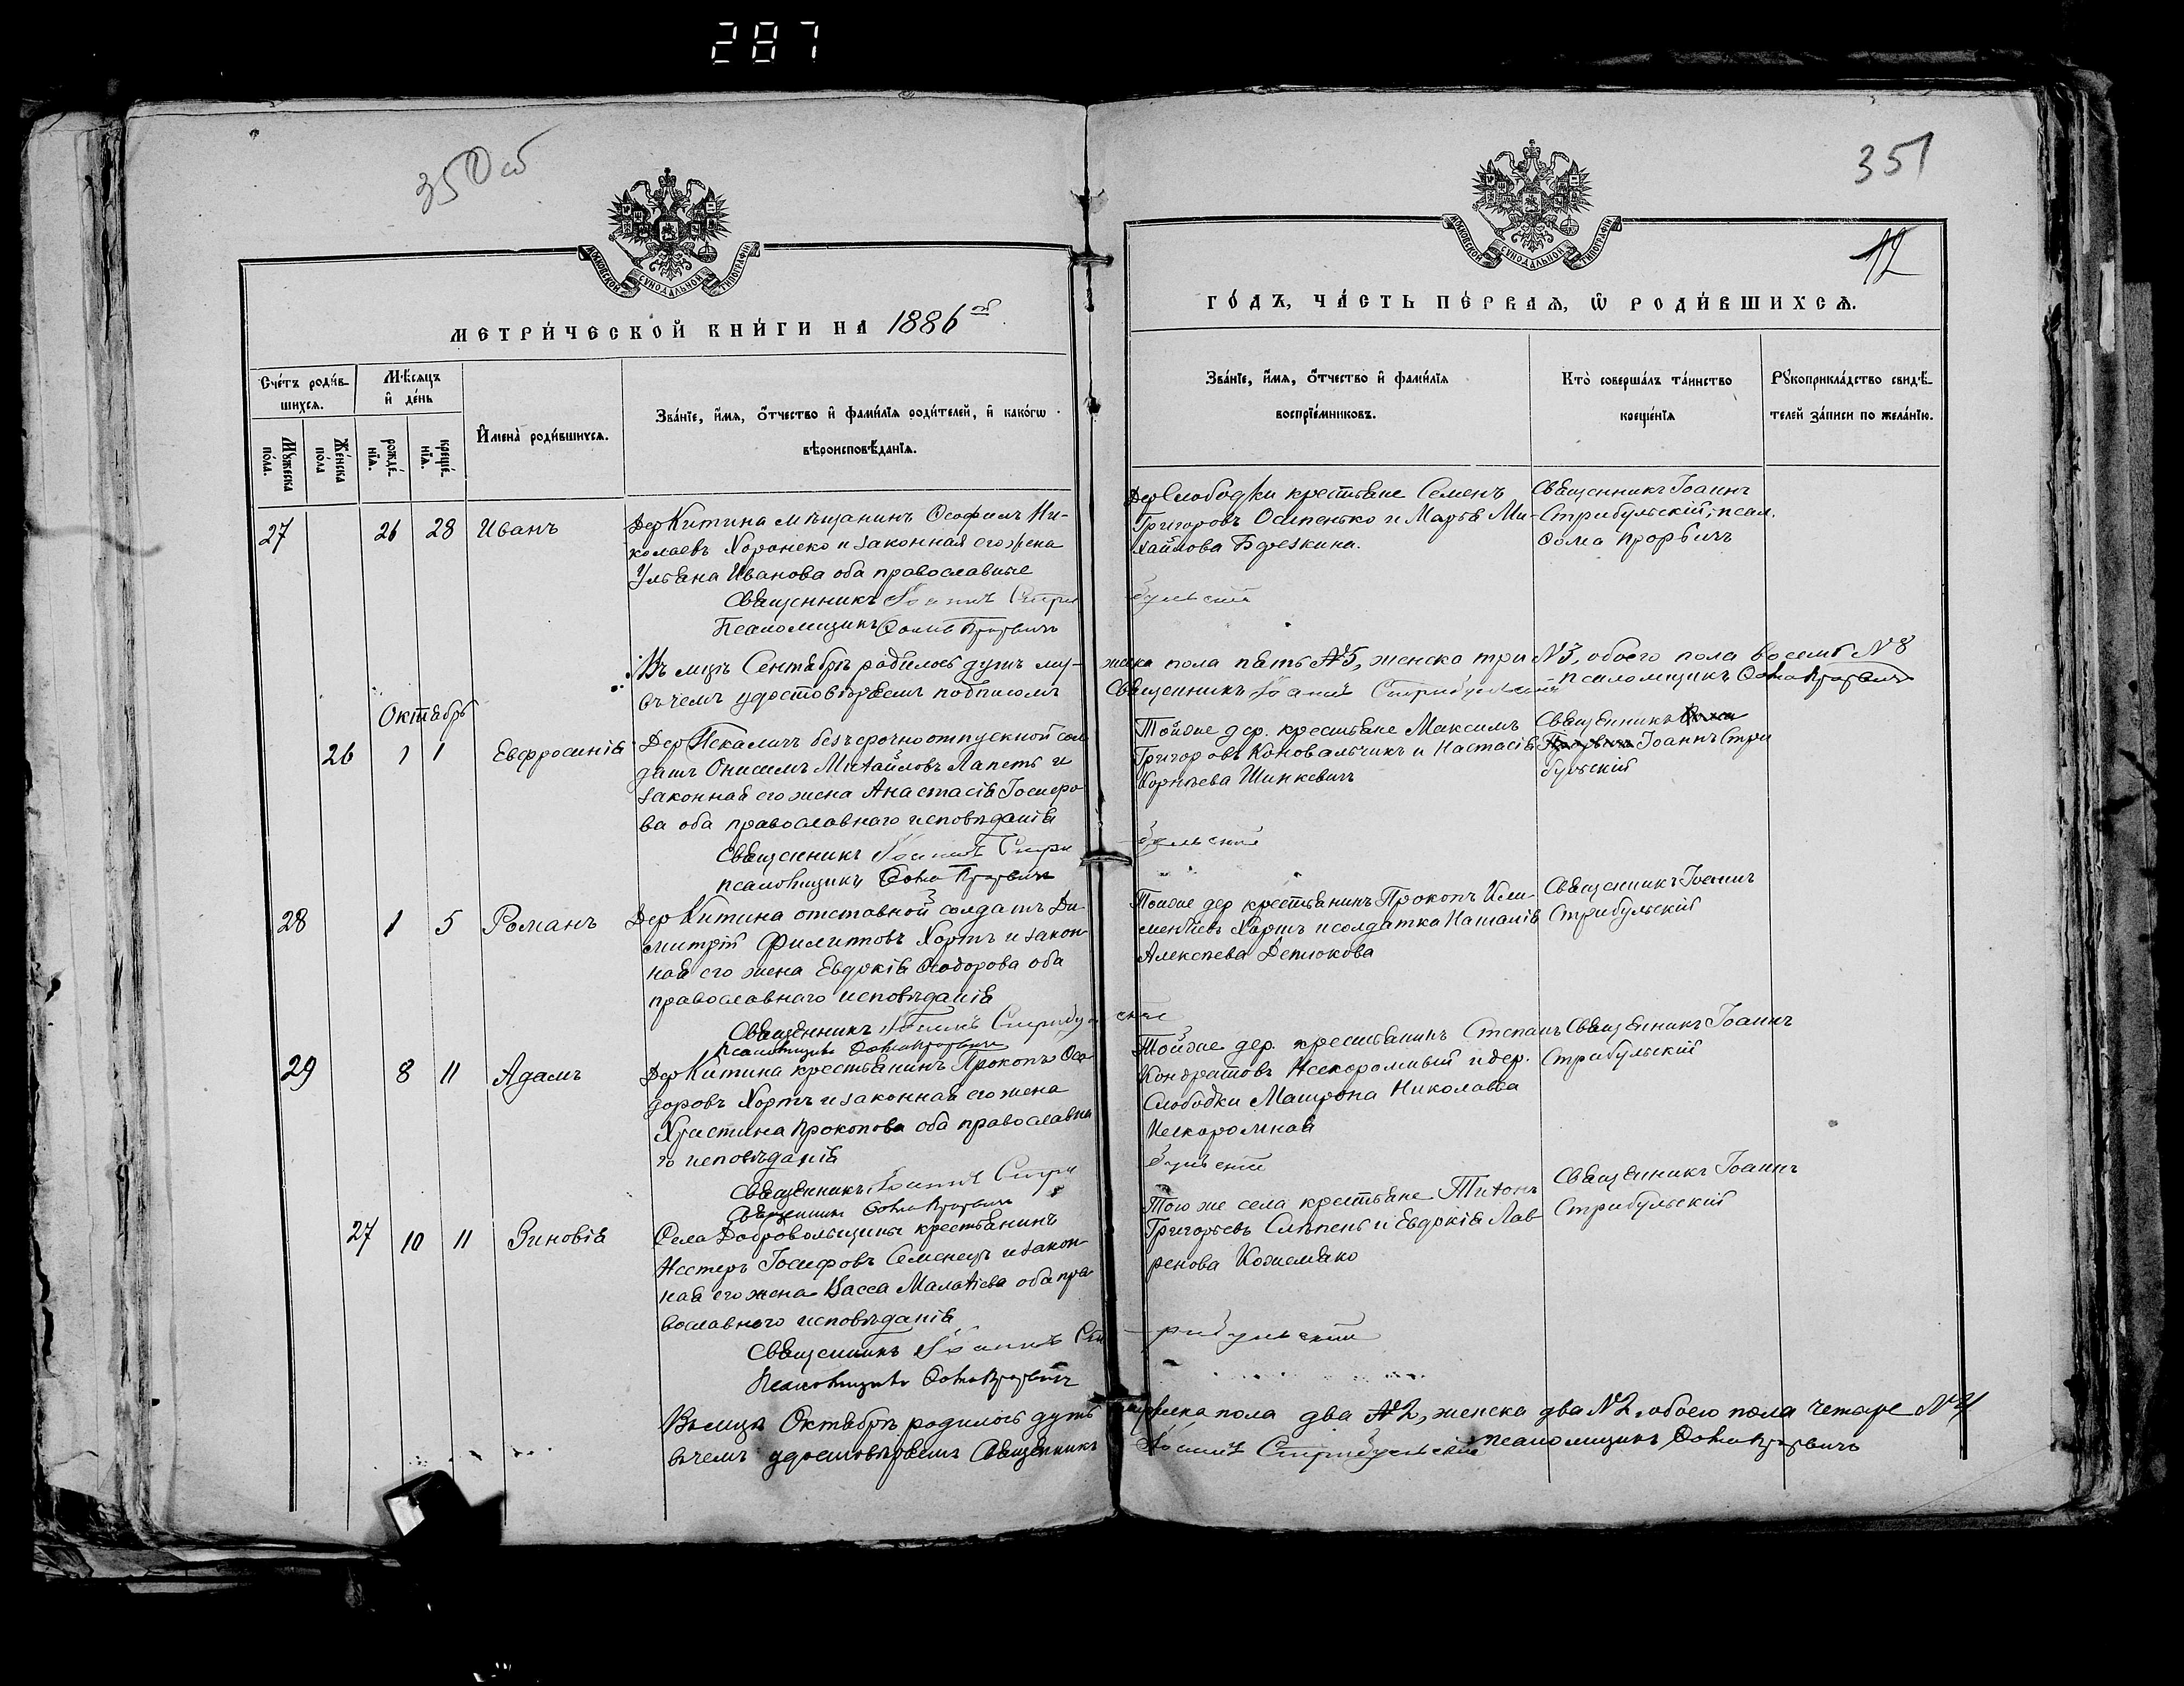 287
350 об
351
12
МОСКОВСКОЙ СѴНОДАЛЬНОЙ ТИПОГРАФІИ
МОСКОВСКОЙ СѴНОДАЛЬНОЙ ТИПОГРАФІИ
МЕТРИ́ЧЕСКОЙ КНИ́ГИ НА 1886ой
ГО́ДЪ, ЧА́СТЬ ПЕ́РВАЯ, Ѡ РОДИ́ВШИХСЯ.
Сче́тъ роди́в-
шихся.
Мѣ́сяцъ
и де́нь
Мꙋ́жеска по́ла.
Же́нска по́ла
рожде́нїя.
креще́нїя.
И҆мена̀ роди́вшихся.
Зва́нїе, и҆́мя, о҆́тчество и҆ фами́лїя роди́телей, и҆ како́гѡ
вѣроисповѣ́данїя.
Зва́нїе, и҆́мя, о҆́тчество и҆ фами́лїя
воспрїе́мниковъ.
Кто̀ соверша́лъ та́инство
креще́нїя
Рꙋкоприкла́дство свидѣ́-
телей за́писи по жела́нїю.
27 26 28 Иванъ
Дер Китина мѣщанинъ Ѳеофилъ Ни-
колаевъ Хоронеко и законная его жена
Ульяна Иванова оба православные
Священникъ Іоаннъ Стри
бульскій
Псаломщикъ Ѳома
Дер Слободки крестьяне Семенъ
Григоровъ Осипенько и Марѳа Ми-
хайлова Березкина.
Священникъ Іоаннъ
Стрибульскій, псал.
Ѳома
Въ мцѣ Сентябрѣ родилось душъ му-
жска пола пять №5, женска три №3, обоего пола восемь №8
въ чемъ удостовѣряемъ подписомъ
Священникъ Іоаннъ Стрибульскій псаломщикъ Ѳома
Октябрь
26 1 1 Евфросинія
Дер безсрочноотпускной сол
датъ Онисимъ Михайловъ Лапеть и
законная его жена Анастасія Іосифо
ва оба православнаго исповѣданія
Священникъ Іоаннъ Стри
бульскій
псаломщикъ Ѳома
Тойже дер. крестьяне Максимъ
Григоровъ Коновальчикъ и Настасія
Корнѣева Шинкевичъ
Священникъ
Іоаннъ Стри
бульскій
28 1 5 Романъ
Дер Китина отставной солдатъ Ди
митрій Филиповъ Хортъ и закон
ная его жена Евдокія Ѳеодорова оба
православнаго исповѣданія
Священникъ Іоаннъ Стрибульскій
псаломщикъ Ѳома
Тойже дер крестьянинъ Прокопъ Кли-
ментьевъ Хортъ и солдатка Наталія
Алексѣева Детюкова
Священникъ Іоаннъ
Стрибульскій
29 8 11 Адамъ
Дер Китина крестьянинъ Прокопъ Ѳео
доровъ Хортъ и законная его жена
Христина Прокопова оба православна
го исповѣданія
Священникъ Іоаннъ Стри
бульскій
Ѳома
Тойже дер. крестьянинъ Степанъ
Кондратовъ Нескоромный и дер.
Слободки Матрона Николаева
Нескоромная
Священникъ Іоаннъ
Стрибульскій
27 10 11 Зиновія
Села Добровольщины крестьянинъ
Нестеръ Іосифовъ Семенецъ и закон-
ная его жена Васса Малахіева оба пра
вославнаго исповѣданія
Священникъ Іоаннъ Ст
рибульскій
Псаломщикъ Ѳома
Того же села крестьяне Тихонъ
Григорьевъ Слѣпень и Евдокія Лав-
ренова Кожемяко
Священникъ Іоаннъ
Стрибульскій
Въ мцѣ Октябрѣ родилось душъ
мужеска пола два №2, женска два №2, обоего пола четыре №4
въ чемъ удостовѣряемъ Священникъ
Іоаннъ Стрибульскій псаломщикъ Ѳома